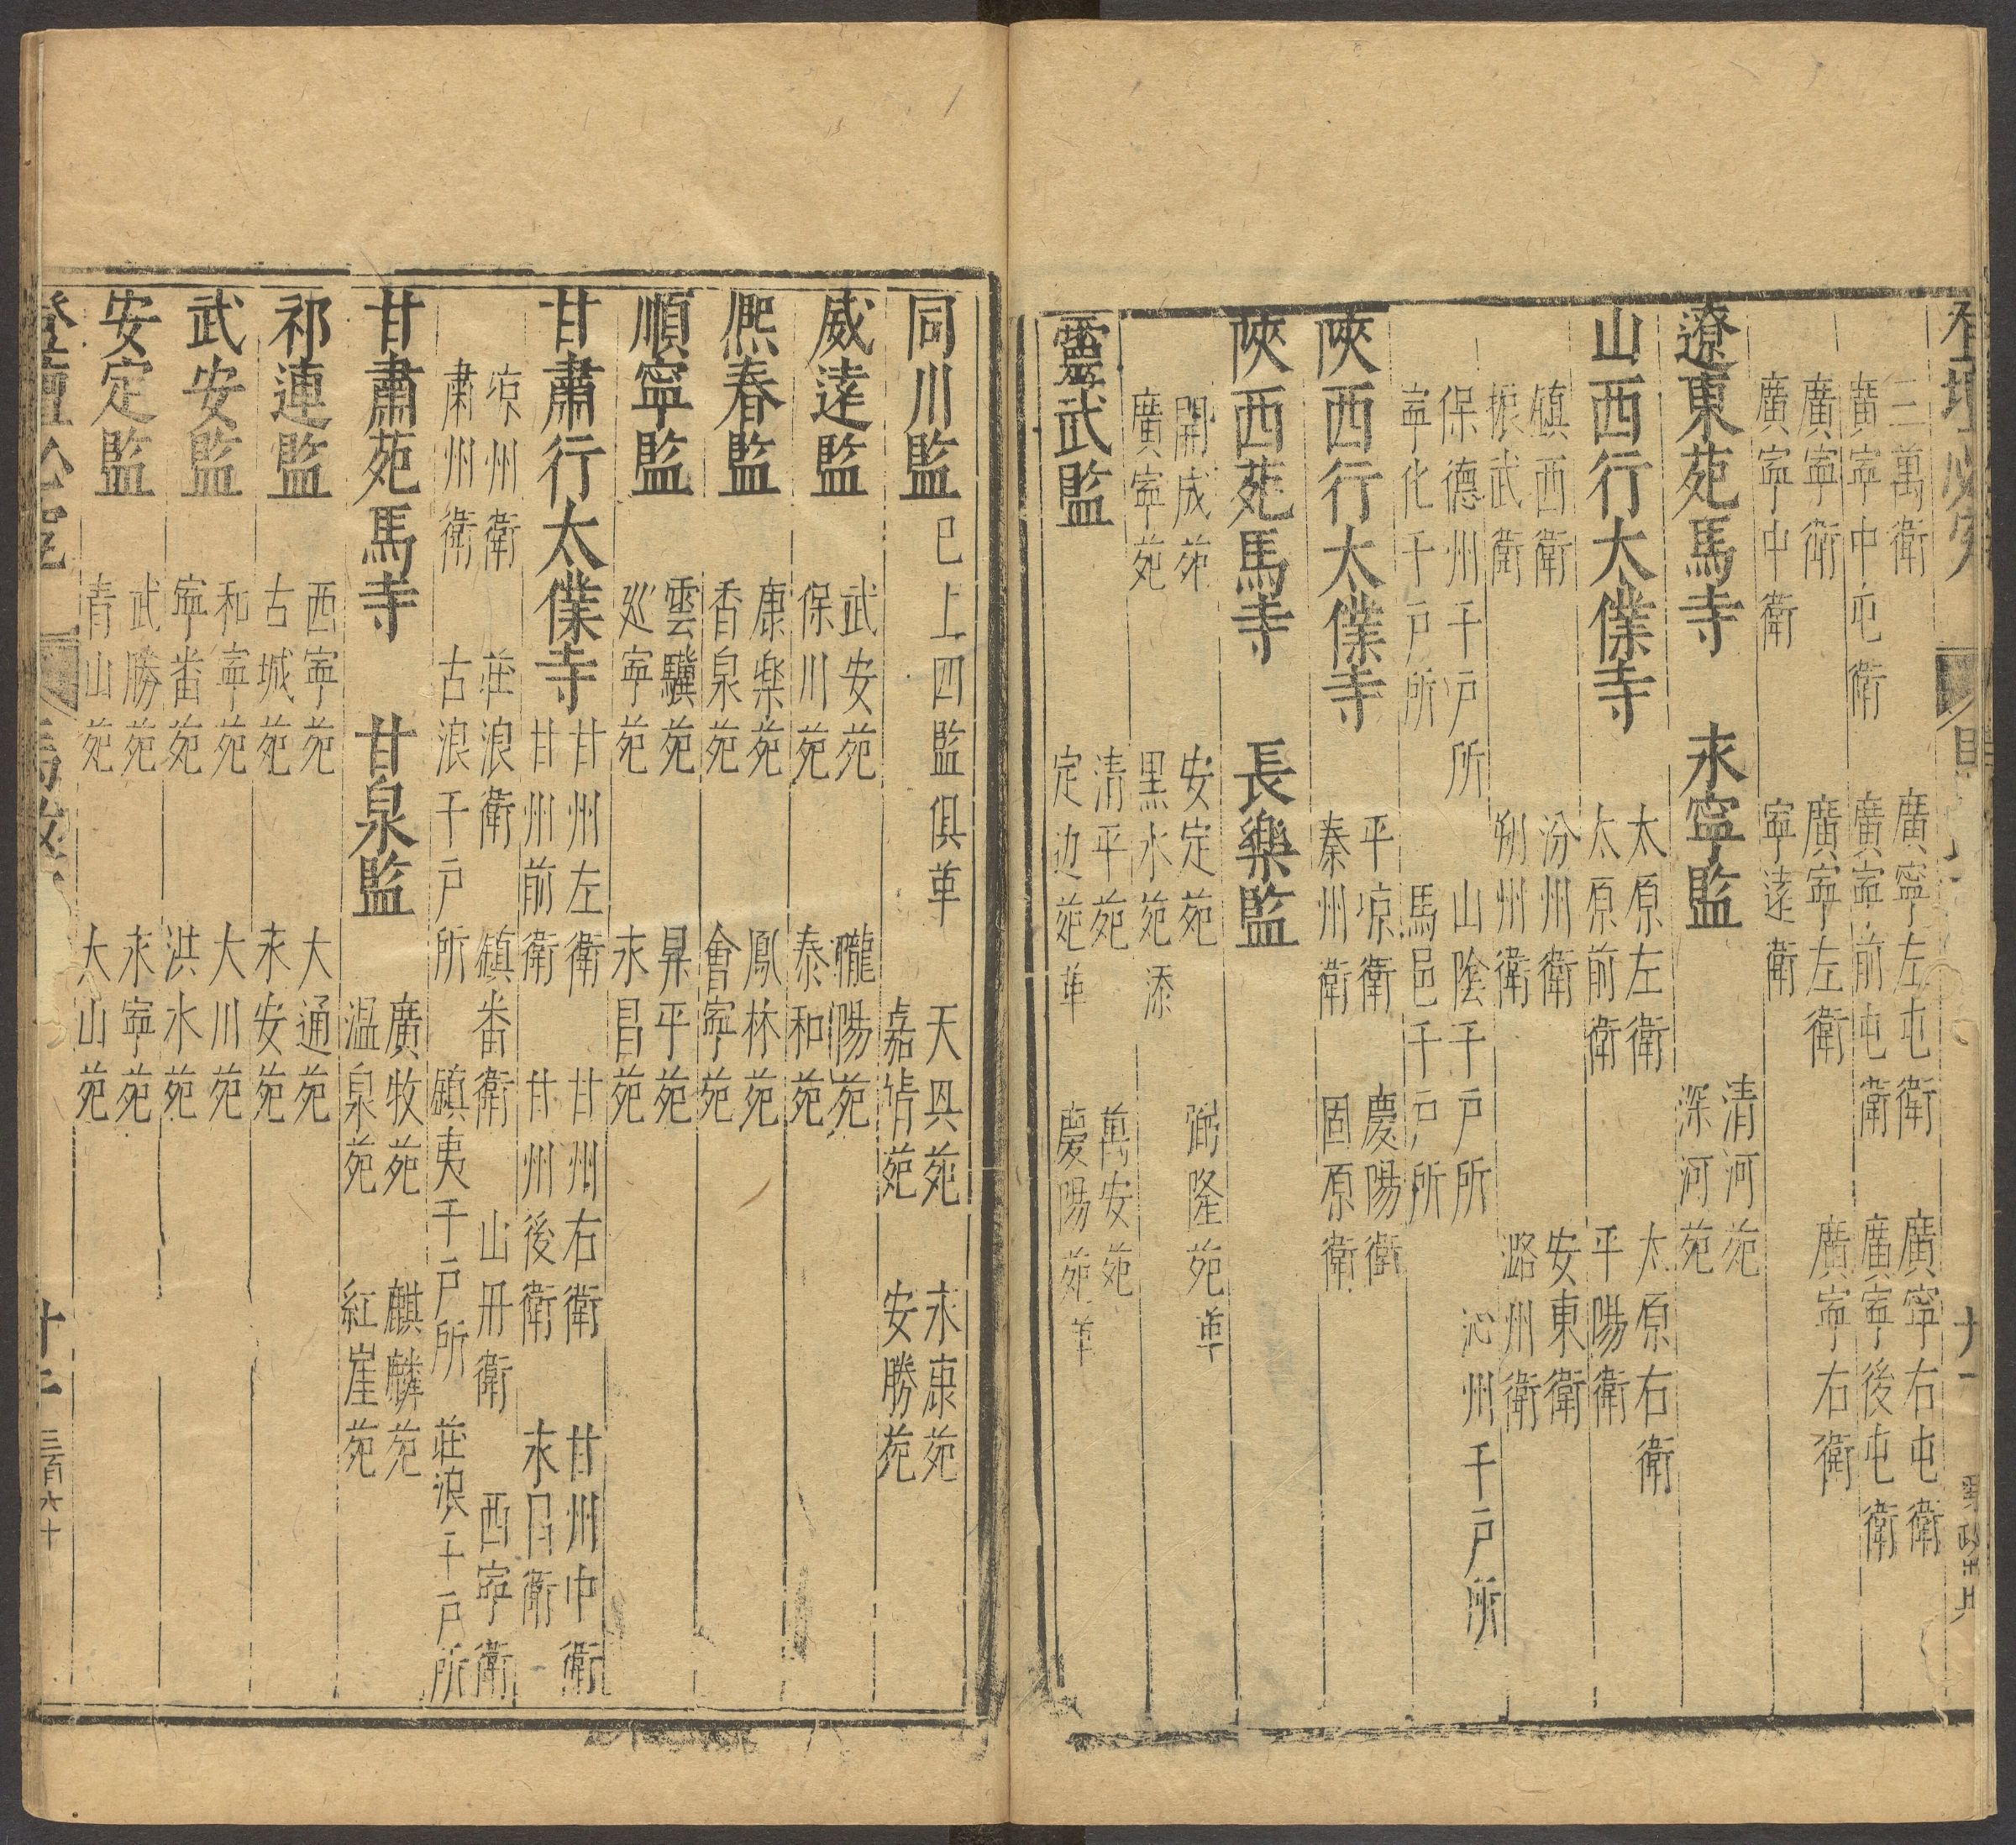 三萬衛　廣寧左屯衛　廣寧右屯衛
廣寧中屯衛　廣寧前屯衛　廣寧後屯衛
廣寧衛　廣寧左衛　廣寧右衛
廣寧中衛　寧遠衛
遼東苑馬寺　永寧監　清河苑
深河苑
山西行太僕寺　太原左衛　太原右衛
太原前衛　平陽衛
鎮西衛　汾州衛　安東衛
振武衛　朔州衛　潞州衛
保德州千戶所　山陰千戶所　沁州千戶所
寧化千戶所　馬邑千戶所
陝西行太僕寺　平凉衛　慶陽衛
秦州衛　固原衛
陝西苑馬寺　長樂監
開成苑　安定苑　弼隆苑革
廣寧苑　黑水苑添
靈武監　清平苑　萬安苑
定边苑革　慶陽苑革
同川監巳上四監俱革　天具苑　永康苑
嘉靖苑　安勝苑
威遠監　武安苑　隴陽苑
保川苑　泰和苑
熈春監　康樂苑　鳳林苑
香泉苑　會寧苑
順寧監　雲驥苑　昇平苑
巡寧苑　永昌苑
甘肅行太僕寺　甘州左衛　甘州右衛　甘州中衛
甘州前衛　甘州後衛　永昌衛
凉州衛　莊浪衛　鎮番衛　山丹衛　西寧衛
肅州衛　古浪千户所　鎮夷千户所　莊浪千户所
甘肅苑馬寺　甘泉監　廣牧苑　麒麟苑
温泉苑　紅崖苑
祁連監　西寧苑　大通苑
古城苑　永安苑
武安監　和寧苑　大川苑
寧番苑　洪水苑
安定監　武勝苑　永寧苑
青山苑　大山苑
登壇必究
三百六十